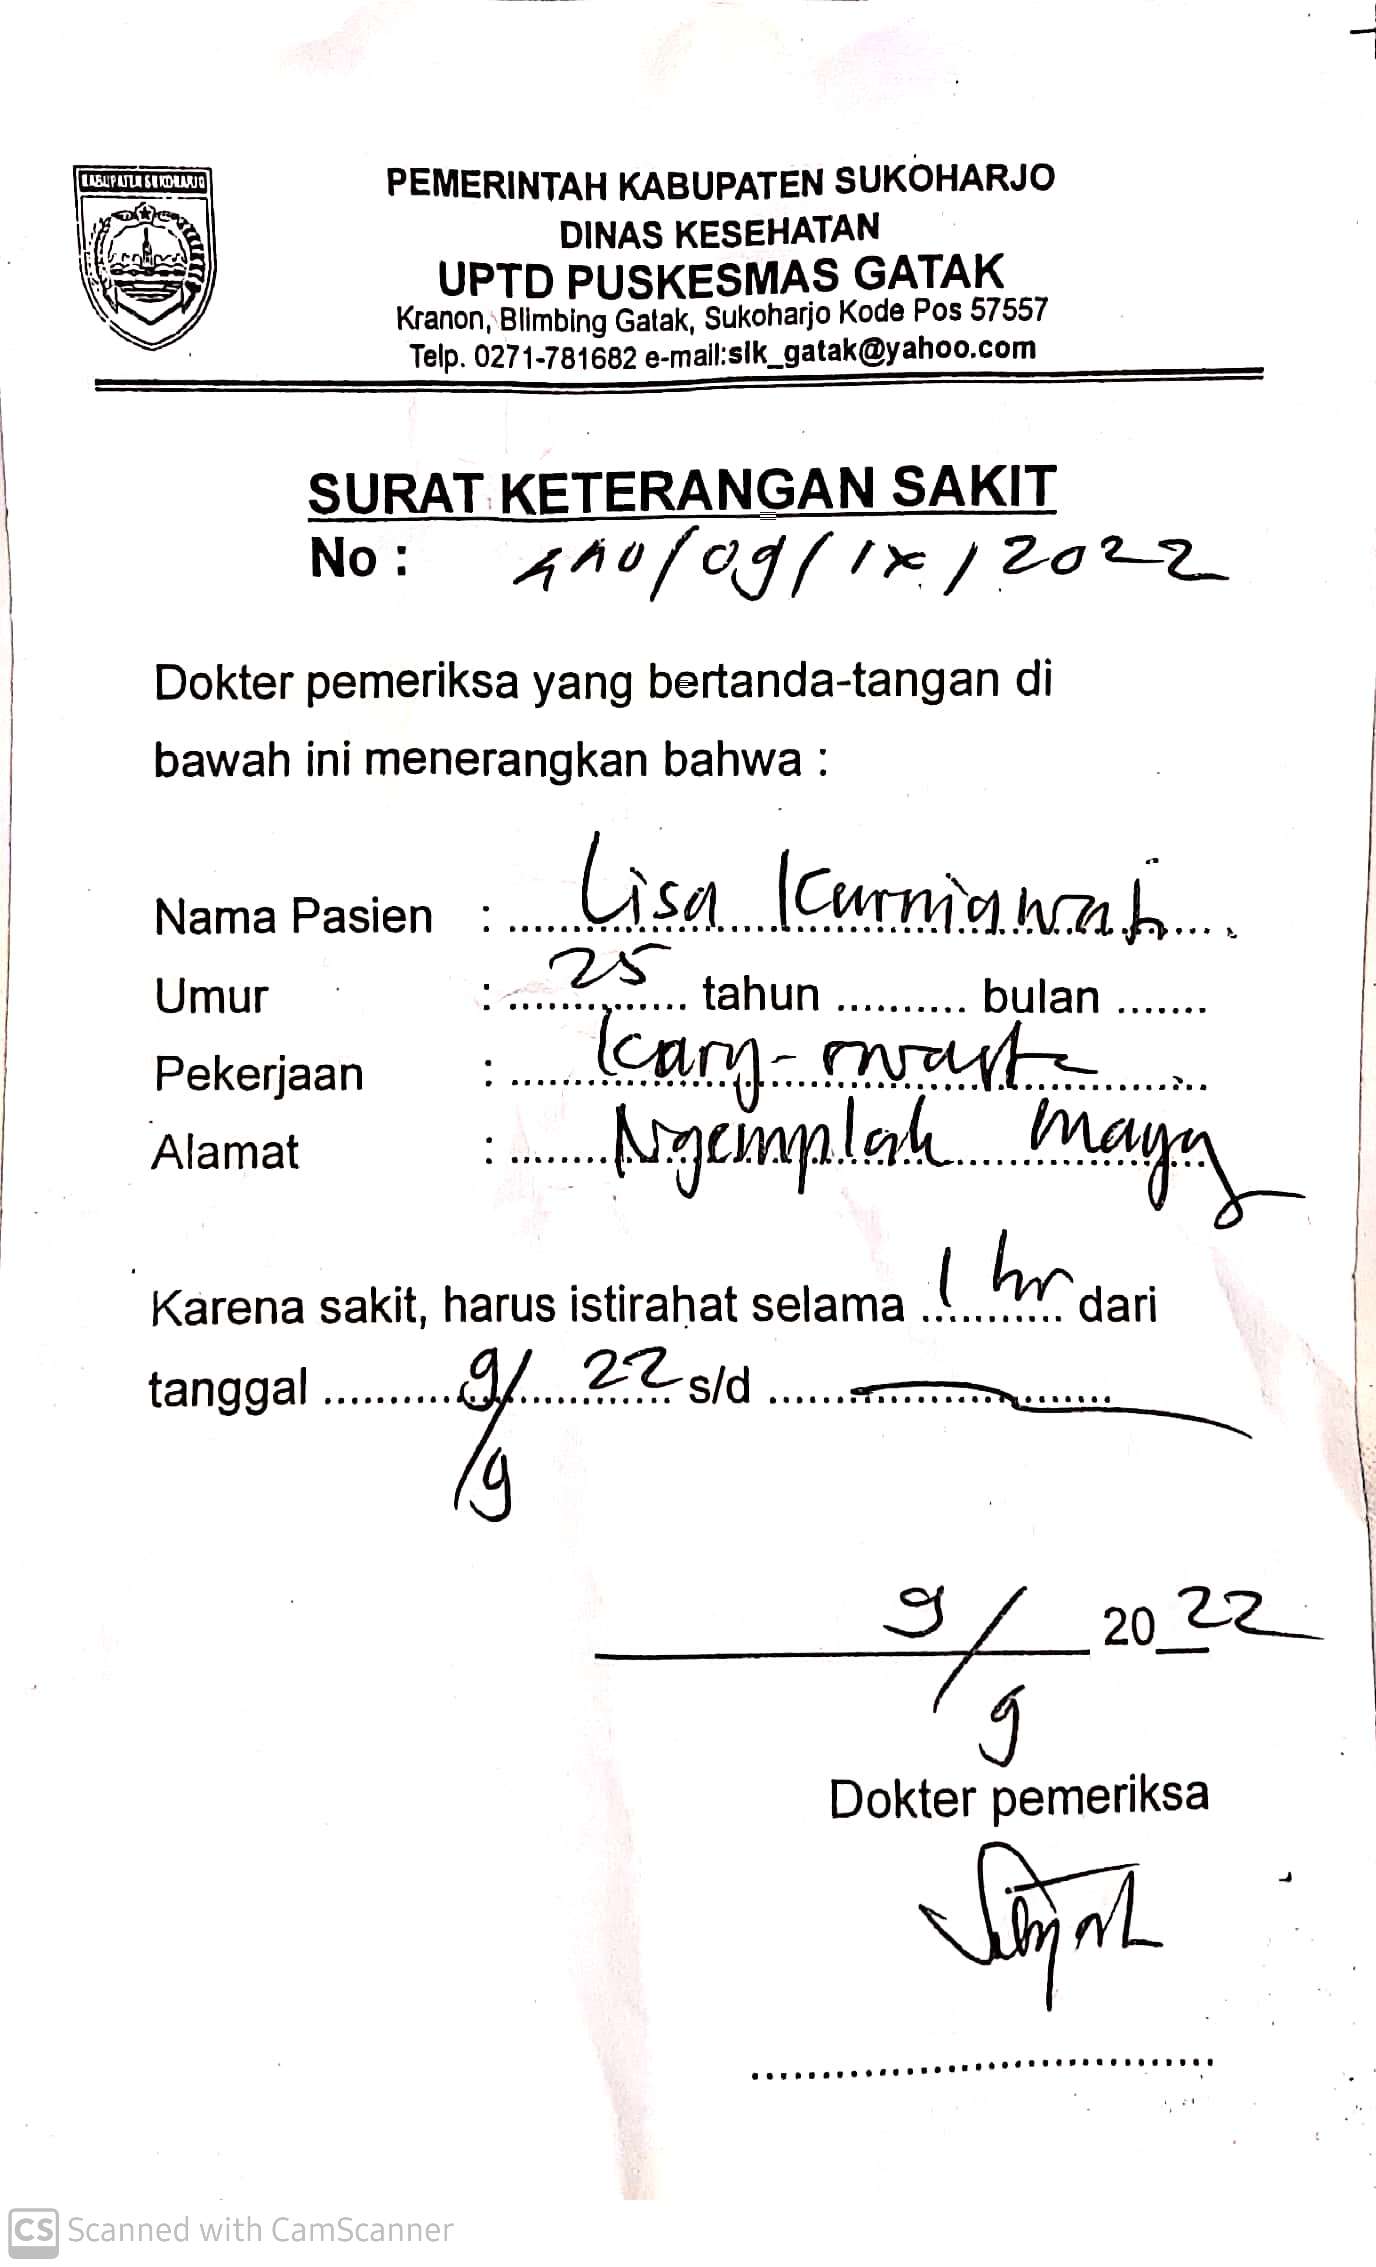 KABUPATEN SUKOHARJO
PEMERINTAH KABUPATEN SUKOHARJO
DINAS KESEHATAN
UPTD PUSKESMAS GATAK
Kranon, Blimbing Gatak, Sukoharjo Kode Pos 57557
Telp. 0271-781682 e-mail:sik_gatak@yahoo.com
SURAT KETERANGAN SAKIT
No : /09/IX/2022
Dokter pemeriksa yang bertanda-tangan di
bawah ini menerangkan bahwa :
Nama Pasien : Lisa Kurniawati
Umur : 25 tahun .......... bulan .......
Pekerjaan : Kary-swasta
Alamat : Ngemplak
Karena sakit, harus istirahat selama 1 hr dari
tanggal 9/9 22 s/d —
9/9 2022
Dokter pemeriksa
CS Scanned with CamScanner